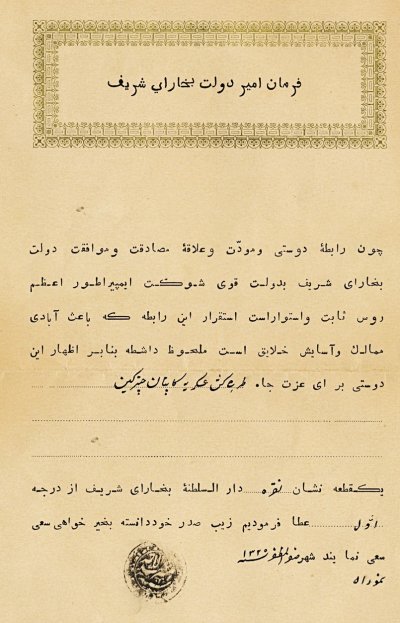 فرمان امير دولت بخاراي شريف
چون رابطهٔ دوستى ومودّت وعلاقهٔ مصادقت وموافقت دولت
بخاراى شريف بدولت قوى شوكت ايمپيراطور اعظم
روس ثابت واستواراست استقرار اين رابطه كه باعث آبادى
ممالك وآسايش خلايق است ملحوظ داشطه بنابر اظهار اين
دوستى براى عزت جاه
يكقطعه نشان نقره دار السلطنهٔ بخاراى شريف از درجه
اوّل عطا فرموديم زيب صدر خوددانسته بخير خواهى سعى
سعى نمايند شهر ١٣٢٩